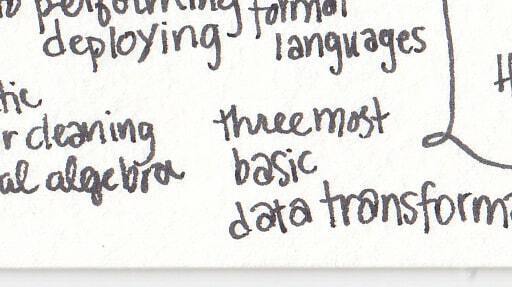 performing formal
deploying languages
tic
r cleaning
al algebra
three most
basic
data transform